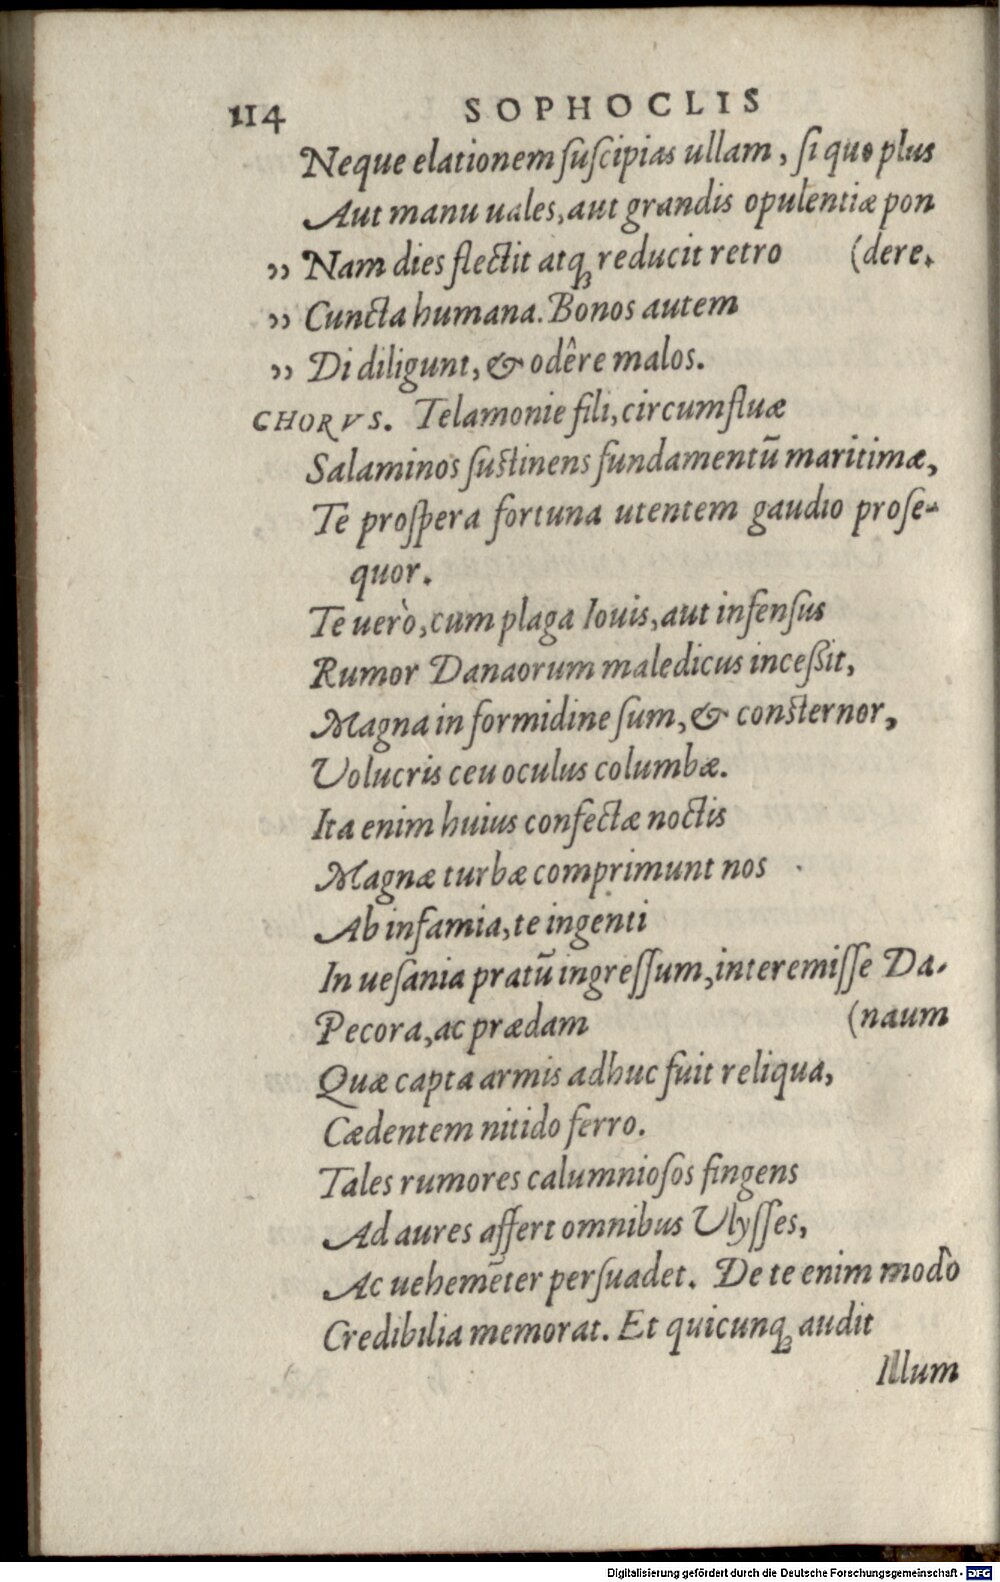 114 SOPHOCLIS
Neque elationem suscipias ullam, si quo plus
Aut manu uales, aut grandis opulentiæ pon
,, Nam dies flectit atq; reducit retro (dere.
,, Cuncta humana. Bonos autem
,, Di diligunt, & odêre malos.
CHORVS. Telamonie fili, circumfluæ
Salaminos sustinens fundamentū maritimæ,
Te prospera fortuna utentem gaudio prose-
quor.
Te uerò, cum plaga Iouis, aut infensus
Rumor Danaorum maledicus inceßit,
Magna in formidine sum, & consternor,
Volucris ceu oculus columbæ.
Ita enim huius confectæ noctis
Magnæ turbæ comprimunt nos
Ab infamia, te ingenti
In uesania pratū ingressum, interemisse Da-
Pecora, ac prædam (naum
Quæ capta armis adhuc fuit reliqua,
Cædentem nitido ferro.
Tales rumores calumniosos fingens
Ad aures affert omnibus Vlysses,
Ac uehemēter persuadet. De te enim modò
Credibilia memorat. Et quicunq; audit
Illum
Digitalisierung gefördert durch die Deutsche Forschungsgemeinschaft - DFG